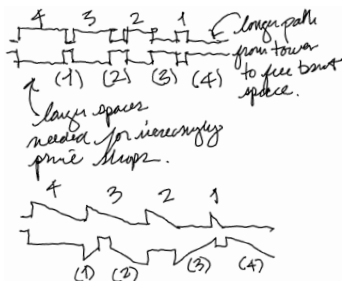 4 3 2 1
longer path
from tower
to free
space.
(1) (2) (3) (4)
larger spaces
needed for increasingly
shops.
4 3 2 1
(1) (2) (3) (4)